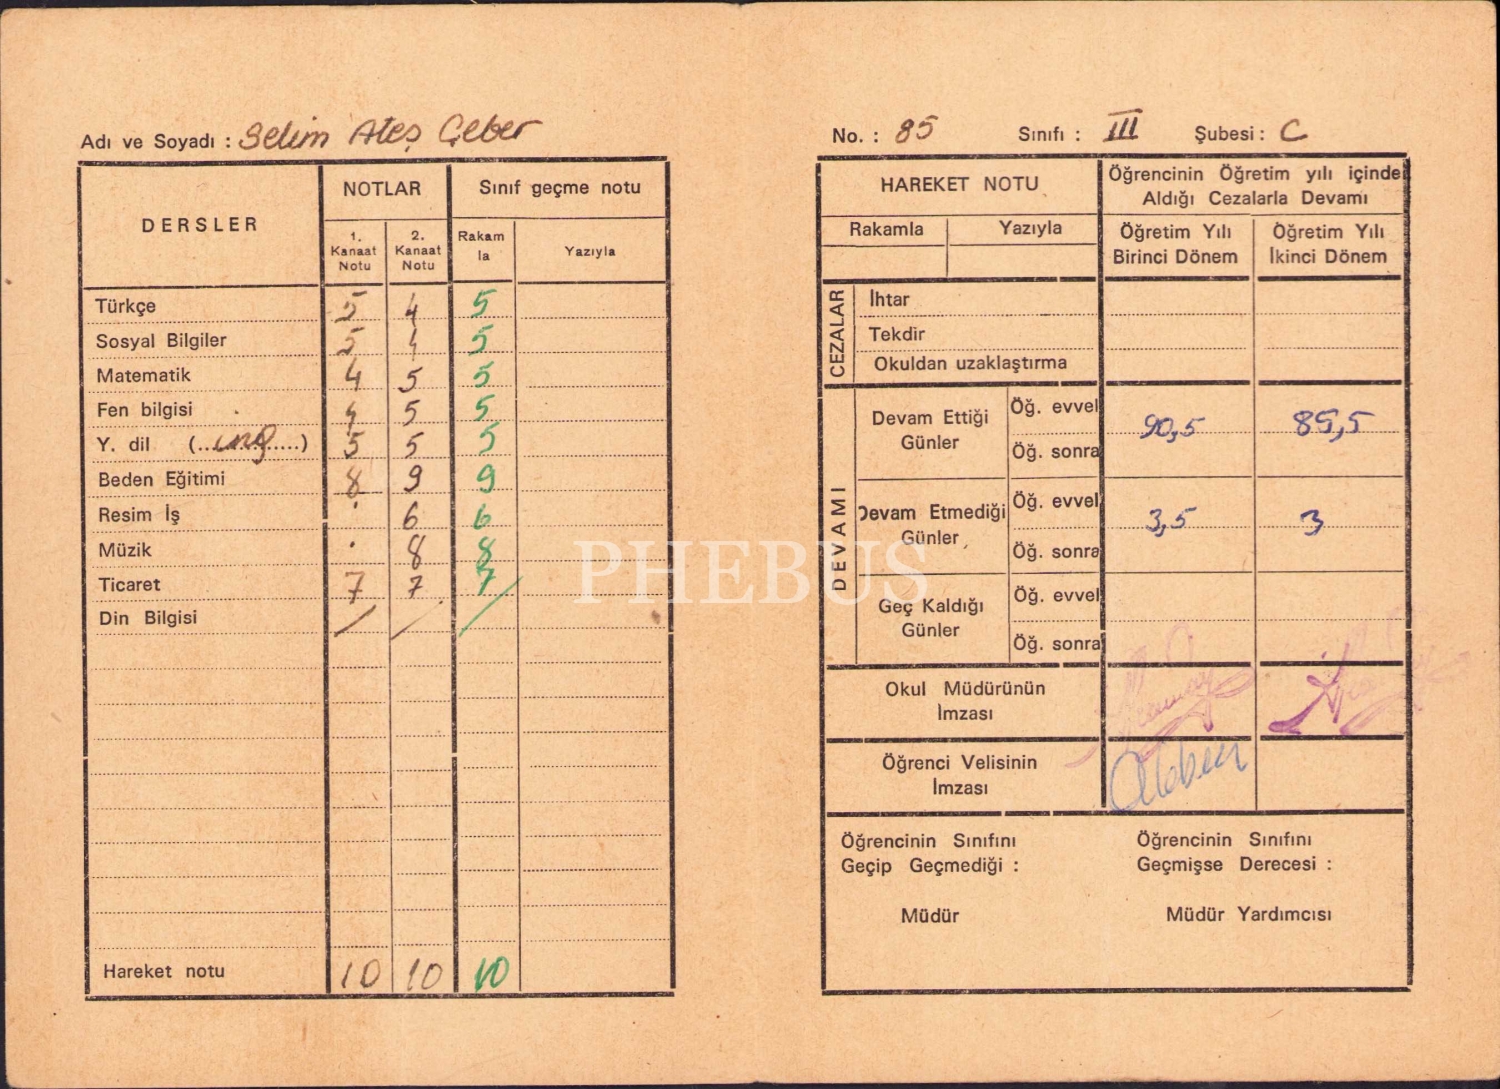 Adı ve Soyadı : Selim Ateş Çeber
DERSLER
NOTLAR
Sınıf geçme notu
1. Kanaat Notu
2. Kanaat Notu
Rakam la
Yazıyla
Türkçe 5 4 5
Sosyal Bilgiler 5 4 5
Matematik 4 5 5
Fen bilgisi 4 5 5
Y. dil (...ing.....) 5 5 5
Beden Eğitimi 8 9 9
Resim İş . 6 6
Müzik . 8 8
Ticaret 7 7 7
Din Bilgisi / / /
Hareket notu 10 10 10
No. : 85 Sınıfı : III Şubesi : C
HAREKET NOTU
Rakamla Yazıyla
Öğrencinin Öğretim yılı içinde
Aldığı Cezalarla Devamı
Öğretim Yılı Birinci Dönem
Öğretim Yılı İkinci Dönem
CEZALAR
İhtar
Tekdir
Okuldan uzaklaştırma
DEVAMI
Devam Ettiği Günler
Öğ. evvel
Öğ. sonra
90,5 85,5
Devam Etmediği Günler
Öğ. evvel
Öğ. sonra
3,5 3
Geç Kaldığı Günler
Öğ. evvel
Öğ. sonra
Okul Müdürünün
İmzası
Öğrenci Velisinin
İmzası
Öğrencinin Sınıfını
Geçip Geçmediği :
Müdür
Öğrencinin Sınıfını
Geçmişse Derecesi :
Müdür Yardımcısı
PHEBUS